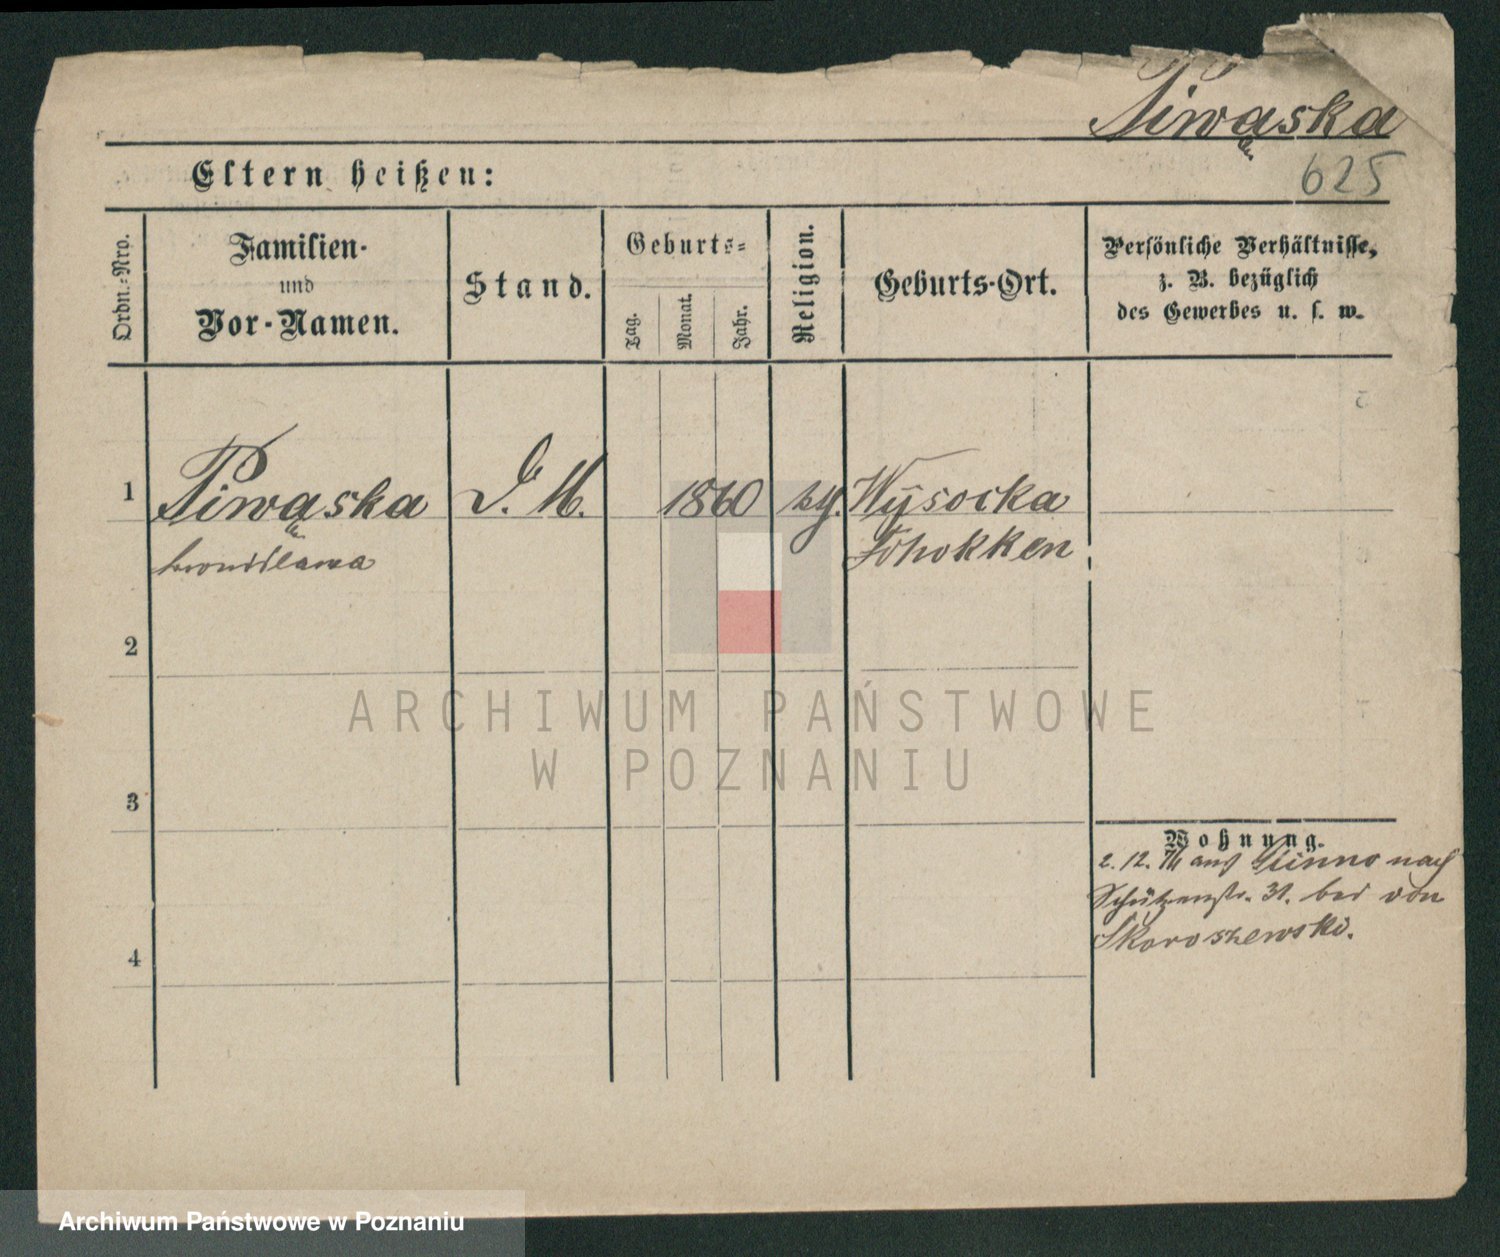 Piwaska
625
Eltern heißen:
Ordn.-Nro.
Familien-
und
Vor-Namen.
Stand.
Geburts-
Tag.
Monat.
Jahr.
Religion.
Geburts-Ort.
Persönliche Verhältnisse,
z. B. bezüglich
des Gewerbes u. s. w.
1
Piwaska
D. M.
1860
Wysocka
bronislawa
Schokken
2
ARCHIWUM PAŃSTWOWE
W POZNANIU
3
Wohnung.
2. 12. aus nach
Schützenstr. 31. bei von
Skoroszewski.
4
Archiwum Państwowe w Poznaniu